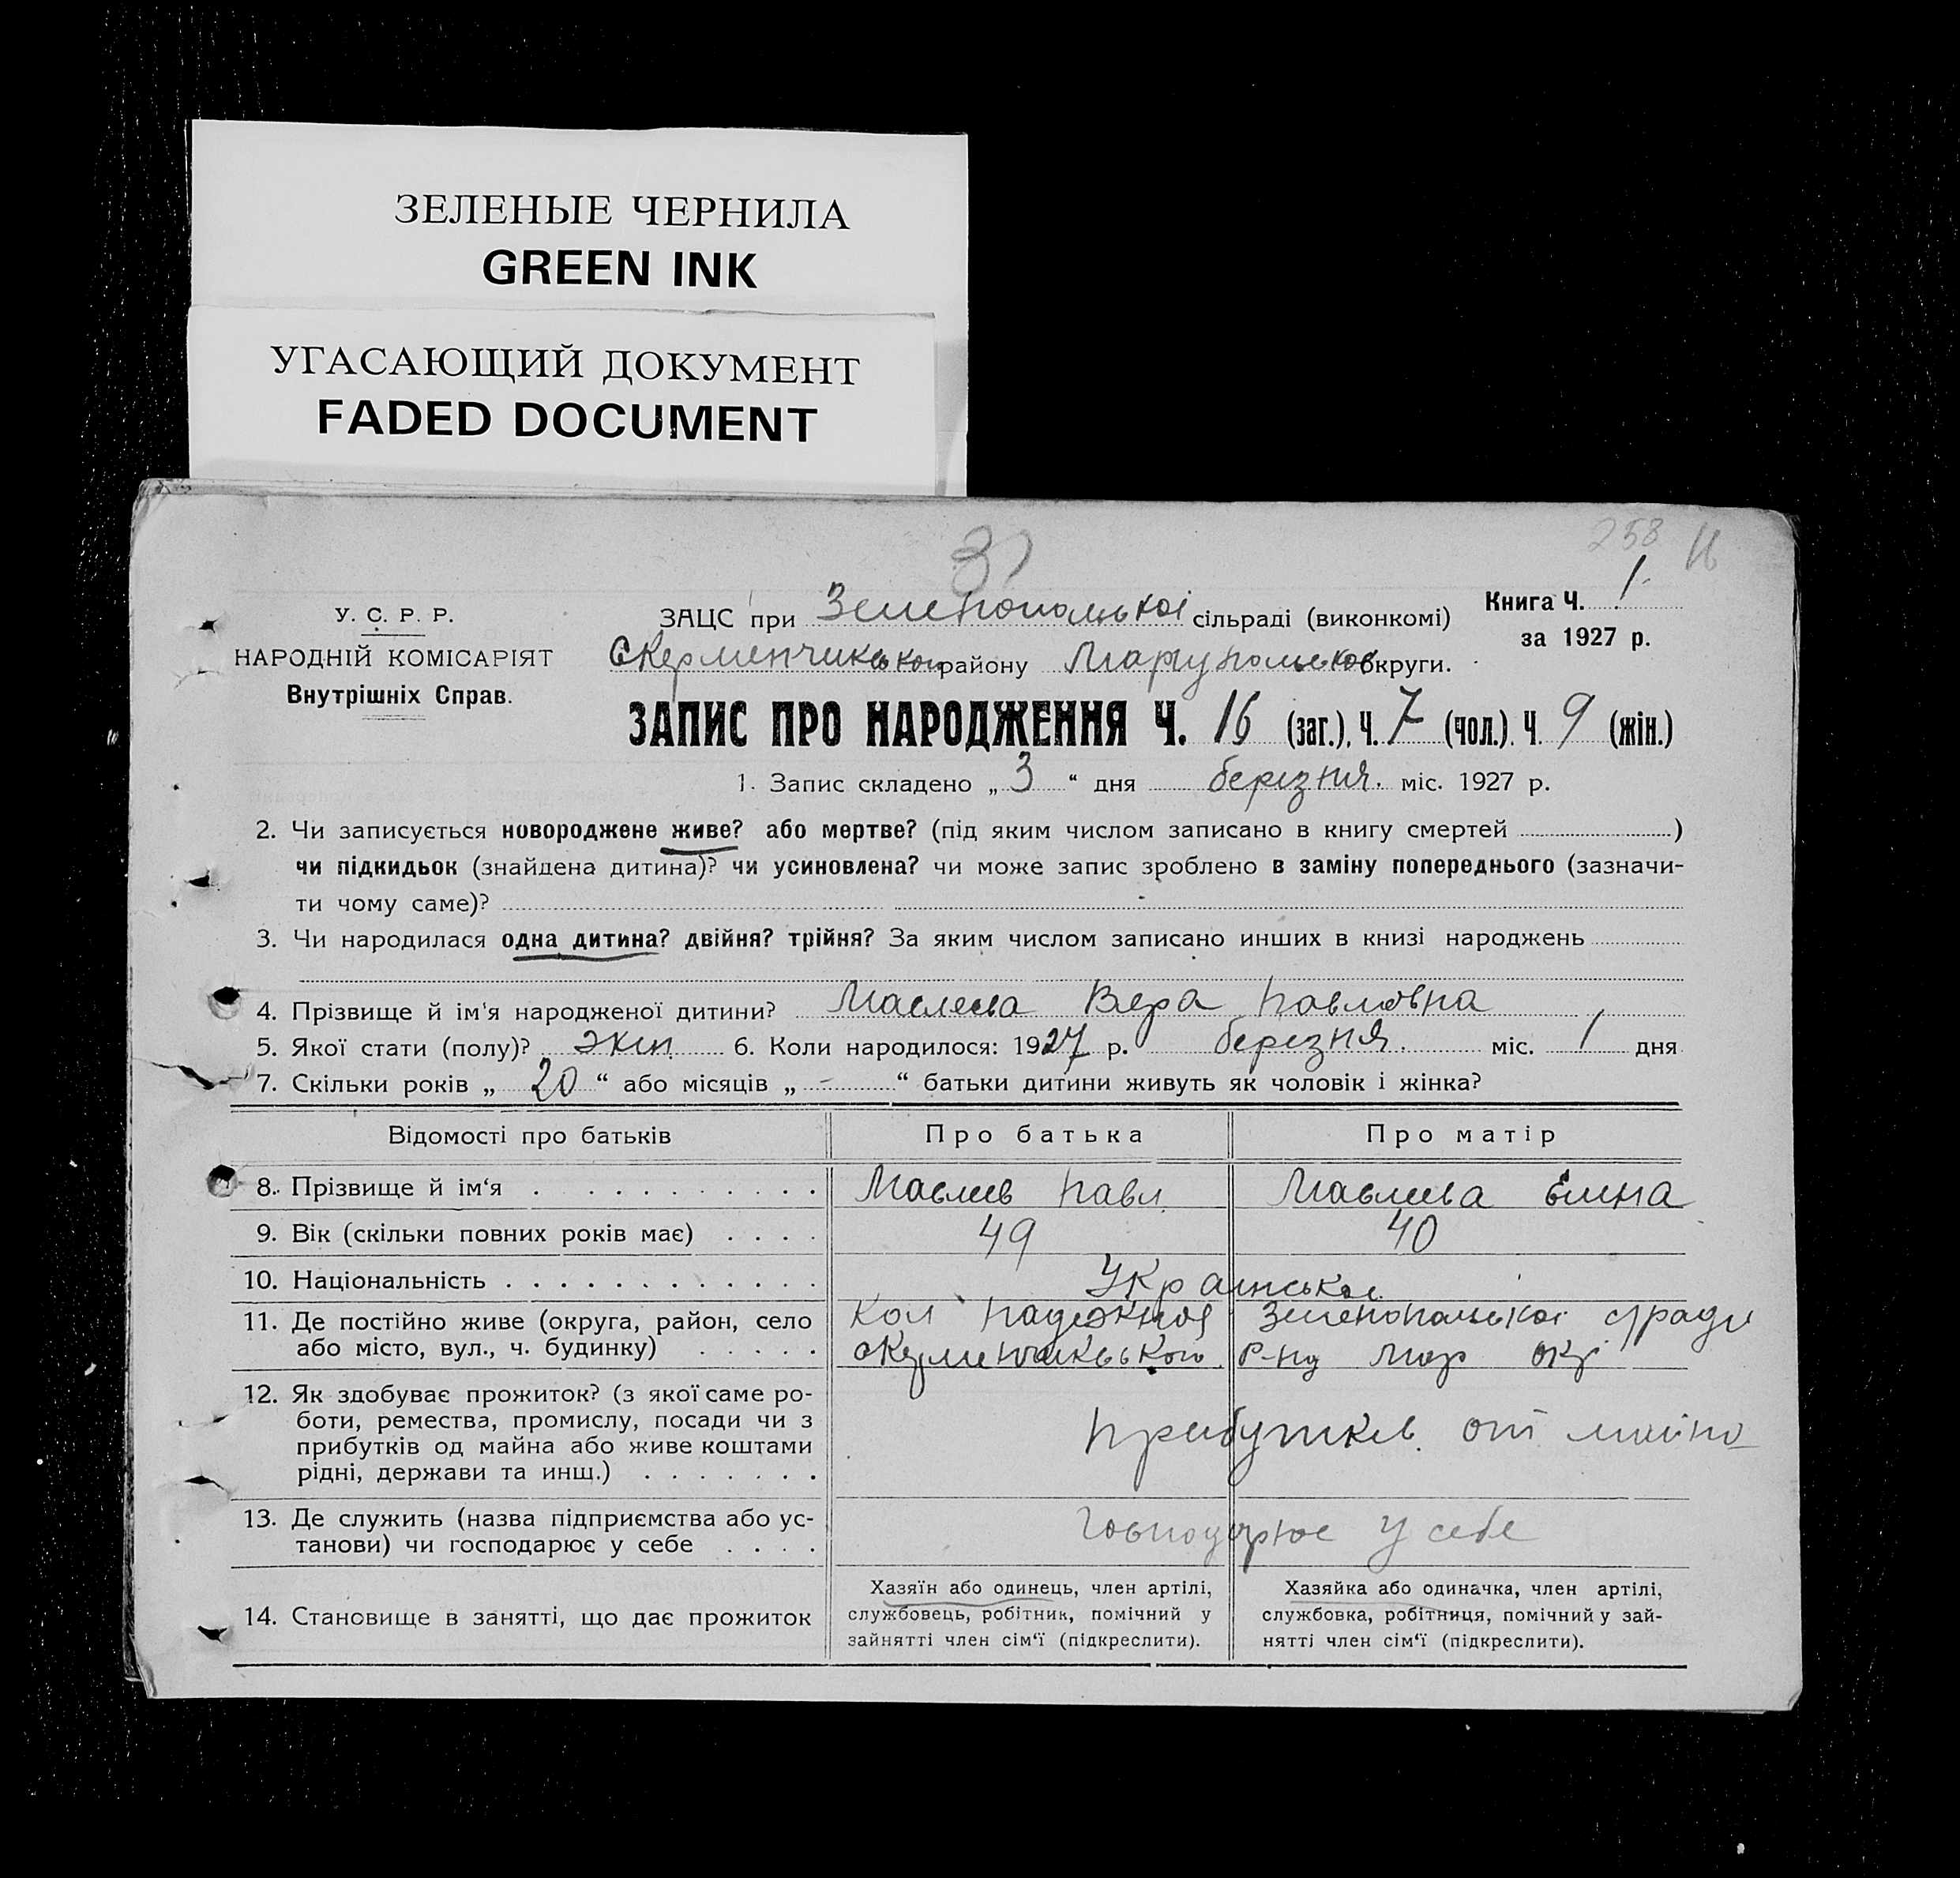 ЗЕЛЕНЫЕ ЧЕРНИЛА
GREEN INK
УГАСАЮЩИЙ ДОКУМЕНТ
FADED DOCUMENT
258
У. С. Р. Р.
НАРОДНІЙ КОМІСАРІЯТ
Внутрішніх Справ.
ЗАЦС при Зеленопольської сільраді (виконкомі)
району Маріупольської округи.
Книга Ч. 1.
за 1927 р.
ЗАПИС ПРО НАРОДЖЕННЯ Ч. 16 (заг.), Ч. 7 (чол.). Ч. 9 (жін.)
1. Запис складено „ 3 “ дня березня. міс. 1927 р.
2. Чи записується новороджене живе? або мертве? (під яким числом записано в книгу смертей )
чи підкидьок (знайдена дитина)? чи усиновлена? чи може запис зроблено в заміну попереднього (зазначи-
ти чому саме)?
3. Чи народилася одна дитина? двійня? трійня? За яким числом записано инших в книзі народжень
4. Прізвище й ім'я народженої дитини? Вера Павловна
5. Якої стати (полу)? жін. 6. Коли народилося: 1927 р. березня. міс. 1 дня
7. Скільки років „ 20 “ або місяців „ - “ батьки дитини живуть як чоловік і жінка?
Відомості про батьків
Про батька
Про матір
8. Прізвище й ім‘я
Павл
9. Вік (скільки повних років має)
49
40
10. Національність
Української
11. Де постійно живе (округа, район, село
або місто, вул., ч. будинку)
Кол Надежная Зеленопольської с/ради
Р-ну Мар окр
12. Як здобуває прожиток? (з якої саме ро-
боти, ремества, промислу, посади чи з
прибутків од майна або живе коштами
рідні, держави та инщ.)
прибутків от майна
13. Де служить (назва підприємства або ус-
танови) чи господарює у себе
Господарює у себе
14. Становище в занятті, що дає прожиток
Хазяїн або одинець, член артілі,
службовець, робітник, помічний у
зайнятті член сім‘ї (підкреслити).
Хазяйка або одиначка, член артілі,
службовка, робітниця, помічний у зай-
нятті член сім‘ї (підкреслити).